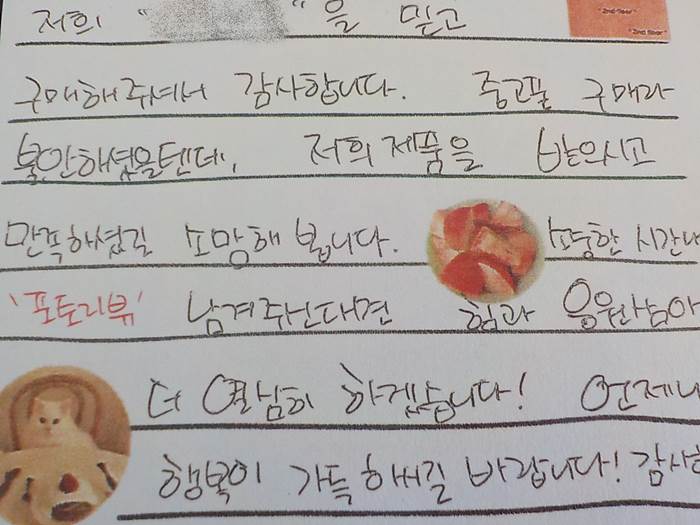 저희 " "을 믿고
"2nd floor"
"2nd floor"
구매해주셔서 감사합니다. 중고품 구매라
불안하셨을텐데, 저희 제품을 받으시고
만족하셨길 소망해 봅니다. 소중한 시간내
'포토리뷰' 남겨주신다면 힘과 응원삼아
더 열심히 하겠습니다! 언제나
행복이 가득하시길 바랍니다! 감사하